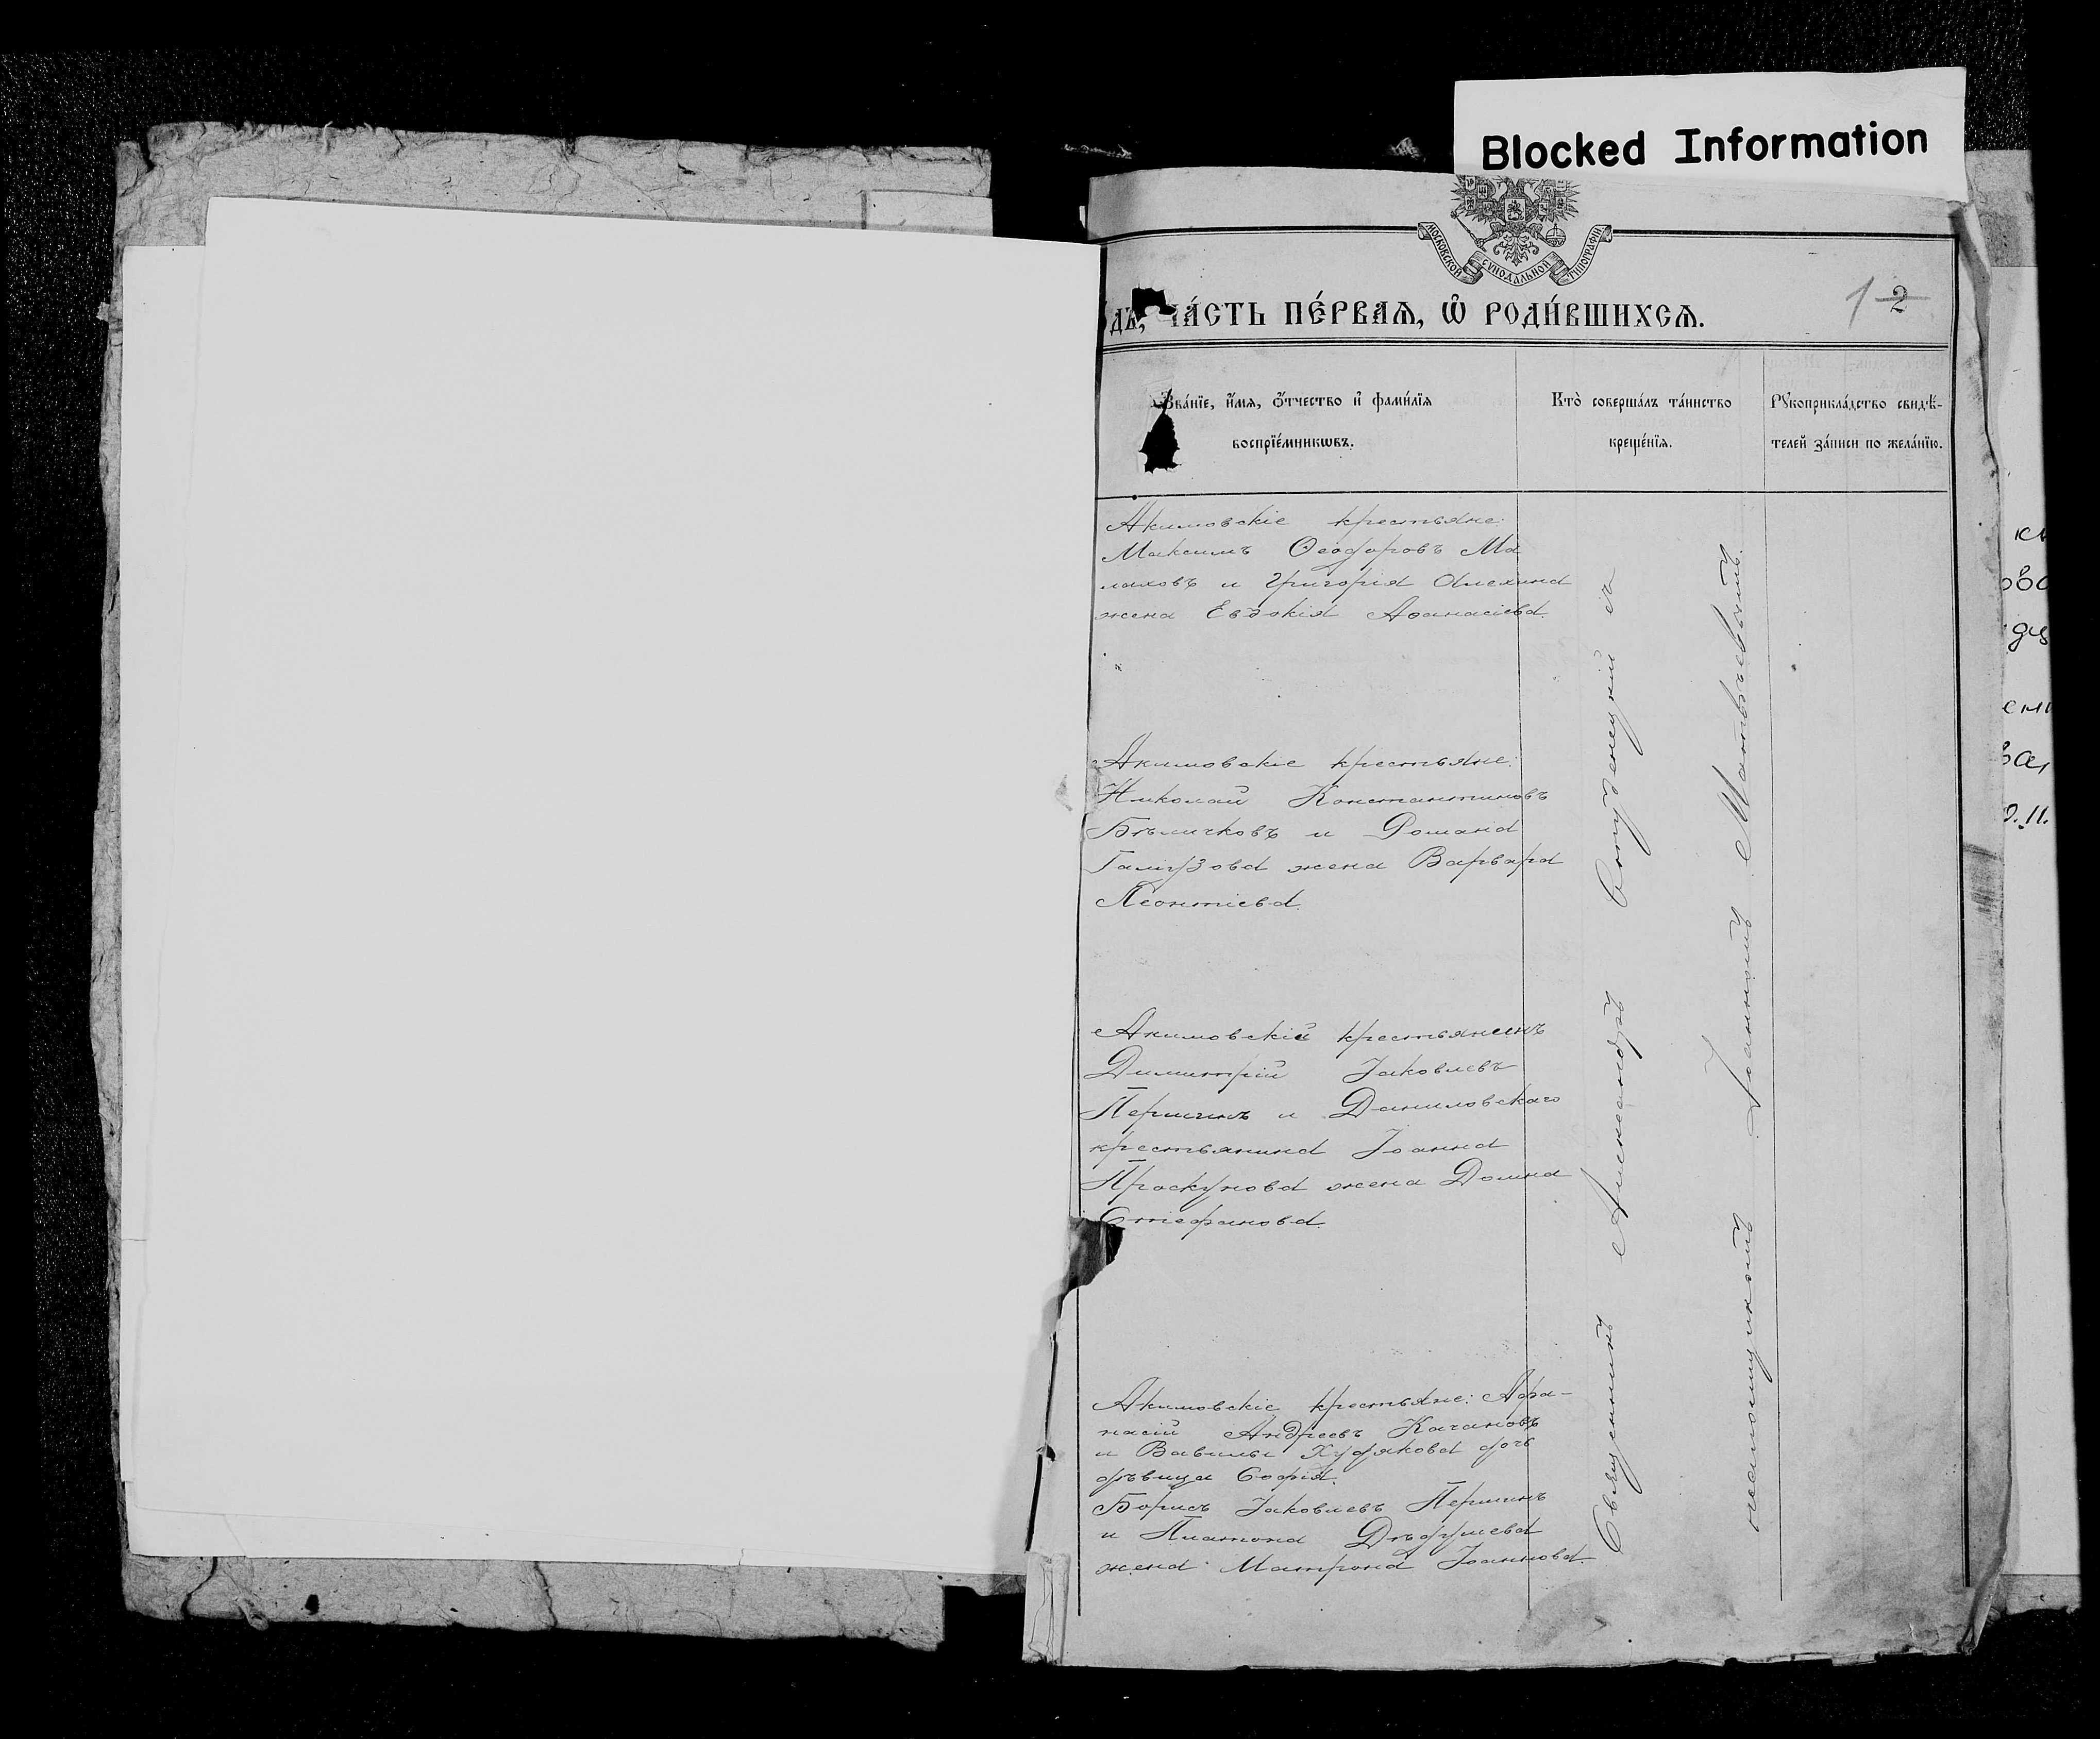 Blocked Information
МОСКОВСКОЙ СѴНОДАЛЬНОЙ ТИПОГРАФІИ
дъ, ча́сть пе́рваѧ, ѽ роди́вшихсѧ.
1 2
Зва́нїе, и҆́мѧ, ѻ҆́тчество и҆ фами́лїѧ
воспрїе́мникѡвъ.
Кто̀ соверша́лъ та́инство
креще́нїѧ.
Рꙋкоприкла́дство свидѣ́-
телей за́писи по жела́нїю.
Акимовскіе крестьяне:
Максимъ Ѳеодоровъ Ма
лаховъ и Григорія Алехина
жена Евдокія Аѳанасіева.
Акимовскіе крестьяне:
Николай Константиновъ
Бѣличковъ и Романа
Галузова жена Варвара
Леонтіева.
Акимовскій крестьянинъ
Димитрій Іаковлевъ
Першинъ и Даниловскаго
крестьянина Іоанна
Проскунова жена Домна
Стефанова.
Акимовскіе крестьяне: Афа-
насій Андреевъ Качановъ
и Вавилы Худякова дочь
дѣвица Софія.
Борисъ Іаковлевъ Першинъ
и Платона
жена Матрона Іоаннова.
Священникъ Александръ Студенецкій съ
псаломщикомъ Іоанномъ Матвѣевымъ.